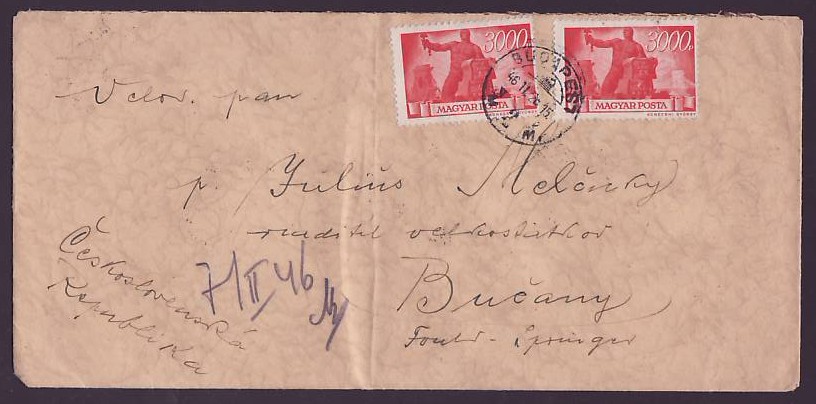 3000 P
MAGYAR POSTA
3000 P
MAGYAR POSTA
BUDAPEST
Velev. pan
p. Július Melčický
riaditel velkostatkov
Bučany
Fould - Springer
Československá
Republika
7/II 46